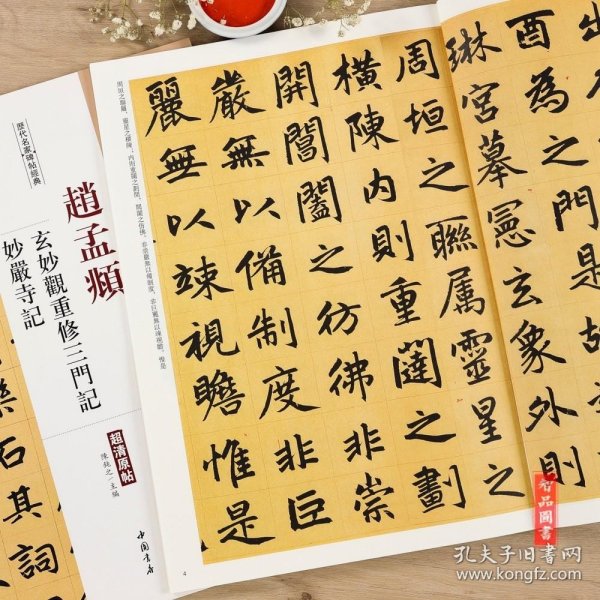 出
酉為之門是
琳宮摹憲玄象外則
周垣之聯屬靈星之
橫陳內則重闥之劃
開閶闔之彷彿非崇
嚴無以備制度非巨
麗無以竦視瞻惟是
周垣之聯屬，靈星之橫陳；內則重闥之劃開，閶闔之彷彿。非崇嚴無以備制度，非巨麗無以竦視瞻。惟是
4
歷代名家碑帖經典
趙孟頫
玄妙觀重修三門記
妙嚴寺記
超清原帖
陳鈍之／主編
中國書店
石其詞
智品圖書
孔夫子旧书网
www.kongfz.com